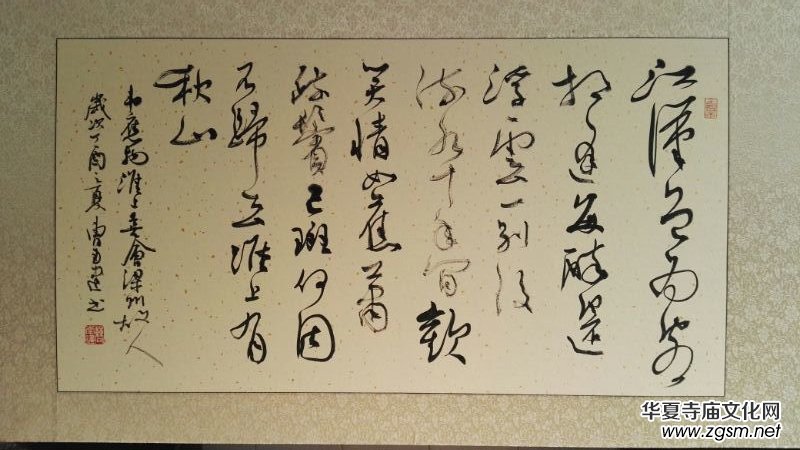 江漢曾为客
相逢每醉還
浮雲一别後
流水十年間歡
笑情如舊蕭
疏鬢已斑何因
不歸去淮上有
秋山
韋應物淮上喜會梁州故人
歲次丁酉之夏曹书
华夏寺庙文化网
www.zgsm.net